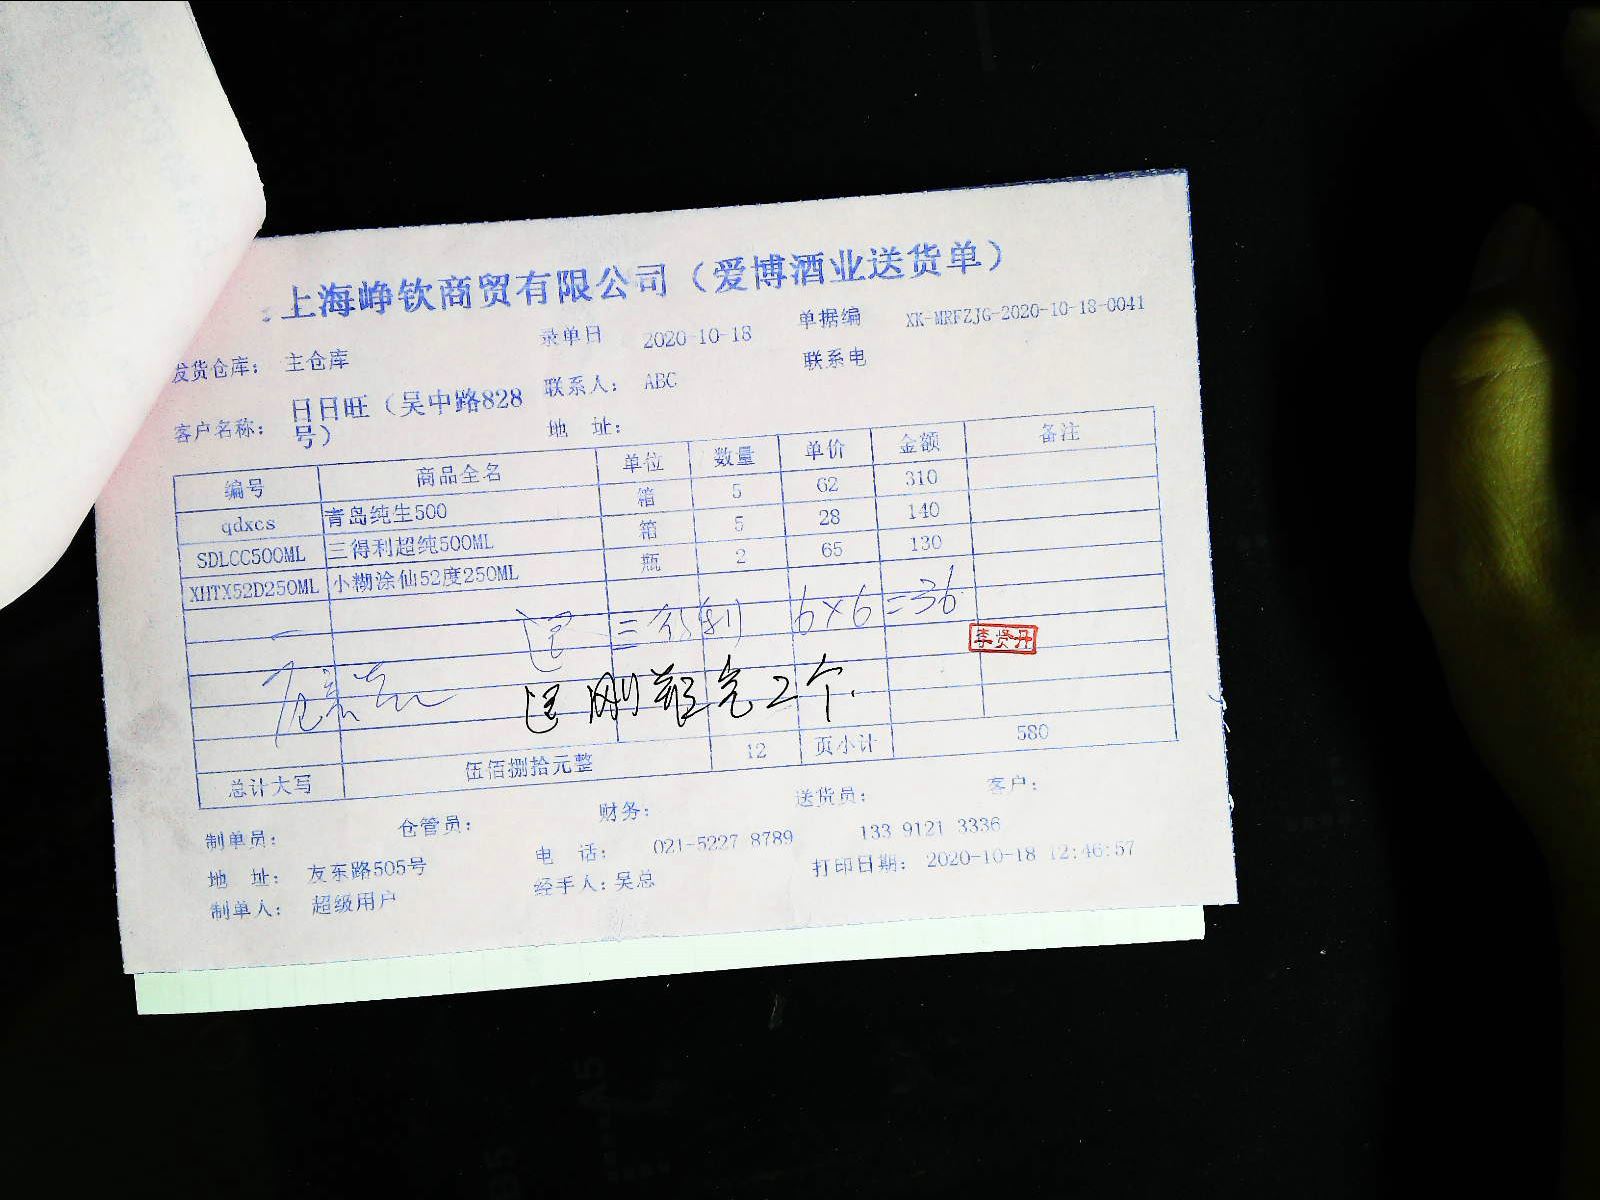 上海峥钦商贸有限公司（爱博酒业送货单）
录单日 2020-10-18 单据编 XK-MRFZJG-2020-10-18-0041
发货仓库： 主仓库 联系电
客户名称： 日日旺（吴中路828号） 联系人： ABC
地 址：
编号 商品全名 单位 数量 单价 金额 备注
qdxcs 青岛纯生500 箱 5 62 310
SDLCC500ML 三得利超纯500ML 箱 5 28 140
XHTX52D250ML 小糊涂仙52度250ML 瓶 2 65 130
6×6=36
李贤丹
2个.
总计大写 伍佰捌拾元整 12 页小计 580
制单员： 仓管员： 财务： 送货员： 客户：
地 址： 友东路505号 电 话： 021-5227 8789 133 9121 3336
制单人： 超级用户 经手人：吴总 打印日期： 2020-10-18 12:46:57